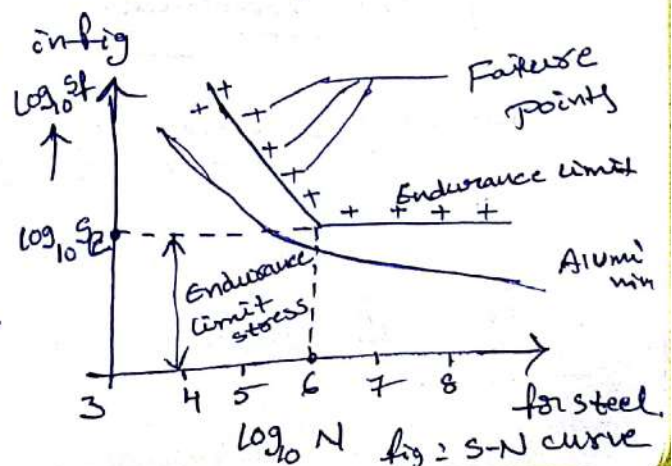 in fig
log10 Sf
Failure
points
Endurance limit
log10 Se
Alumi
nim
Endurance
limit
stress
3 4 5 6 7 8
for steel
log10 N
fig = S-N curve